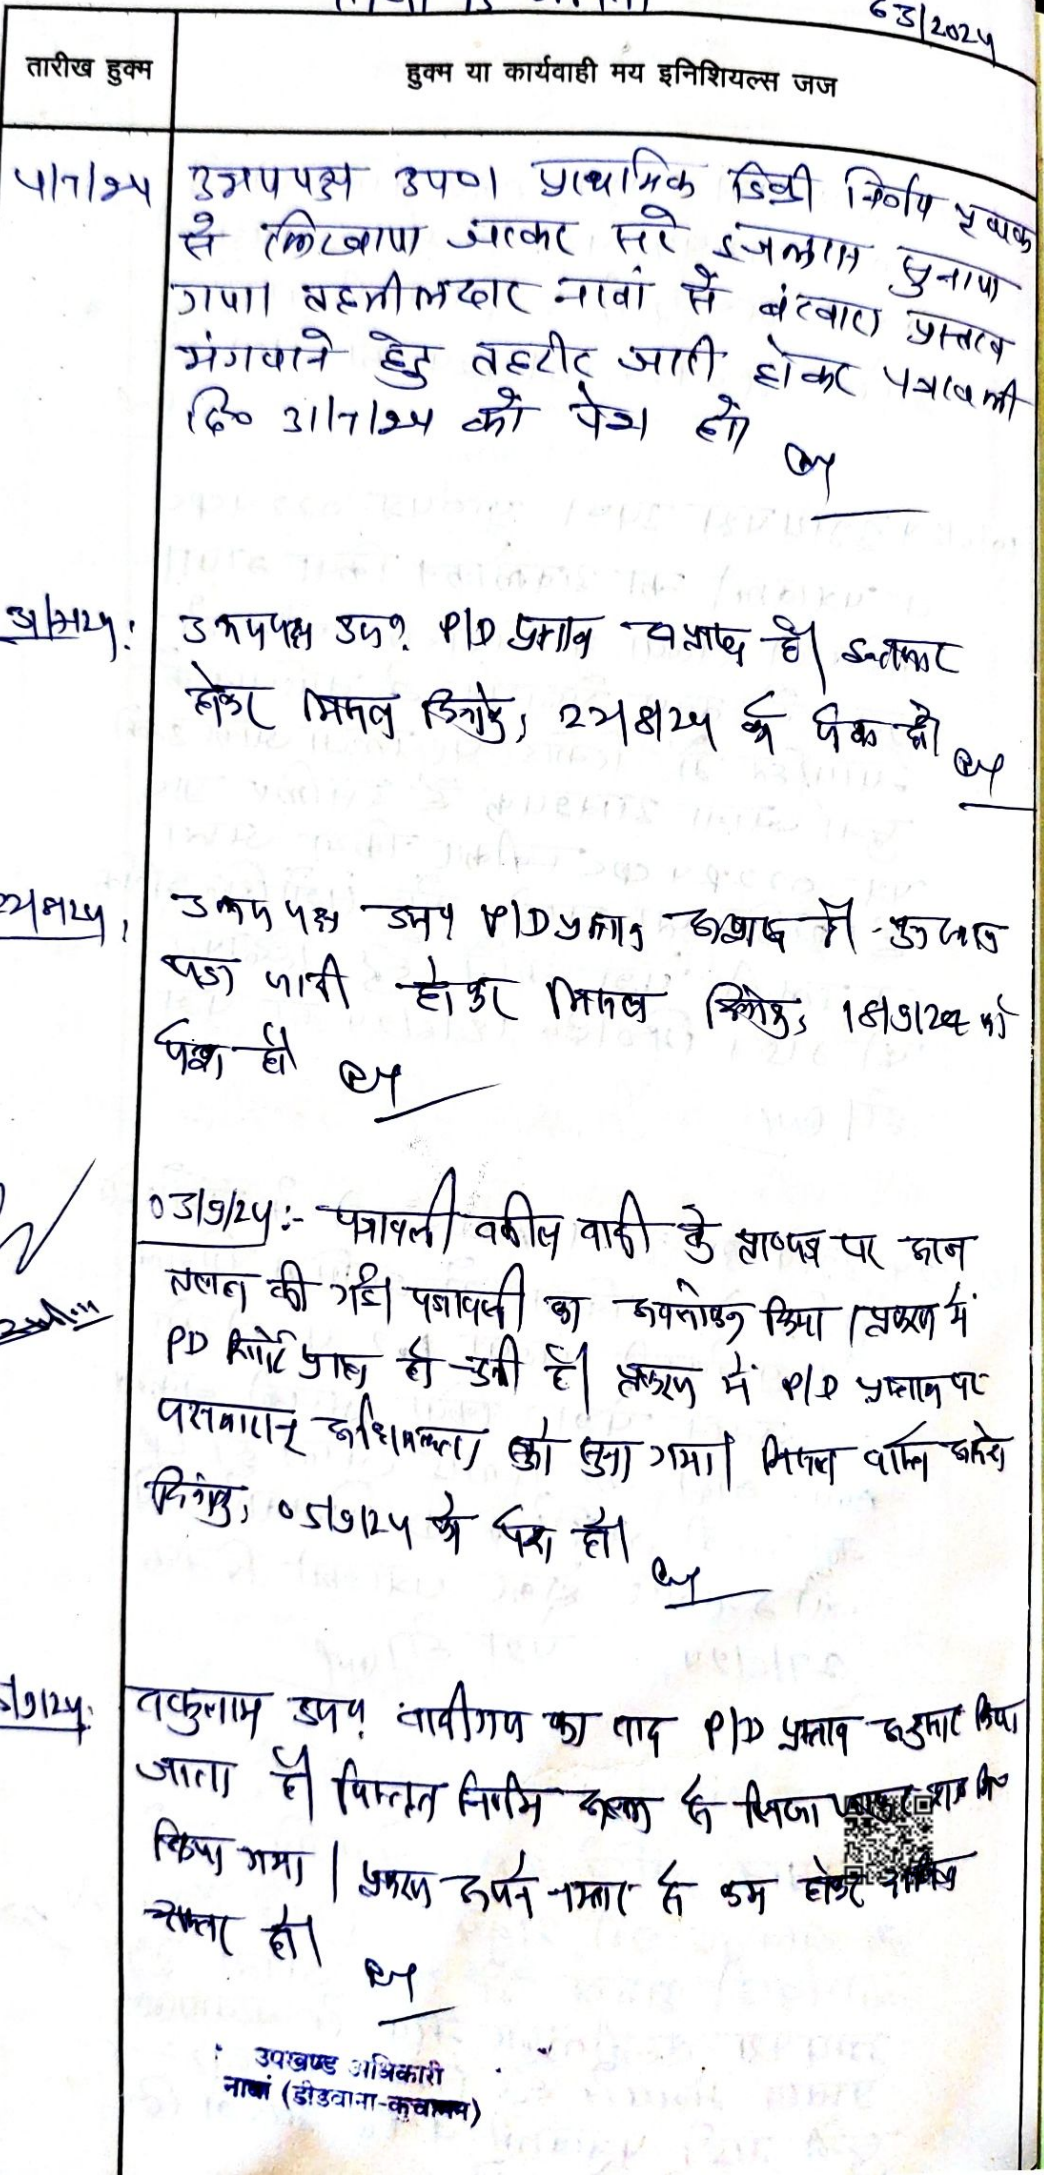 63/2024
तारीख हुक्म
हुक्म या कार्यवाही मय इनिशियल्स जज
4/7/24 उभयपक्ष उप०। प्राथमिक डिक्री निर्णय पृथक
से लिखाया जाकर सरे इजलास सुनाया
गया। तहसीलदार नावां से बंटवारा प्रस्ताव
मंगवाने हेतु तहरीर जारी होकर पत्रावली
दि० 31/7/24 को पेश हो।
उभयपक्ष उप० P/D प्रस्ताव अप्राप्त है। इन्तजार
होकर मिसल दिनांक, 22/8/24 को पेश हो।
22/8/24, उभय पक्ष उप० P/D प्रस्ताव अप्राप्त है।
जारी होकर मिसल दिनांक, 18/9/24 को
पेश हो।
03/9/24:- पत्रावली वकील वादी के प्रा०पत्र पर आज
तलब की गई। पत्रावली का अवलोकन किया। प्रकरण में
PD रिपोर्ट प्राप्त हो चुकी है। प्रकरण में P/D प्रस्ताव पर
पक्षकारान् अधिवक्ता को सुना गया। मिसल वास्ते आदेश
दिनांक, 05/9/24 को पेश हो।
5/9/24. वकुलाय उप०. वादीगण का वाद P/D प्रस्ताव अनुसार किया
जाता है। विस्तृत निर्णय अलग से लिखा
किया गया। प्रकरण अपने नम्बर से कम होकर दाखिल
दफ्तर हो।
उपखण्ड अधिकारी
नावां (डीडवाना-कुचामन)